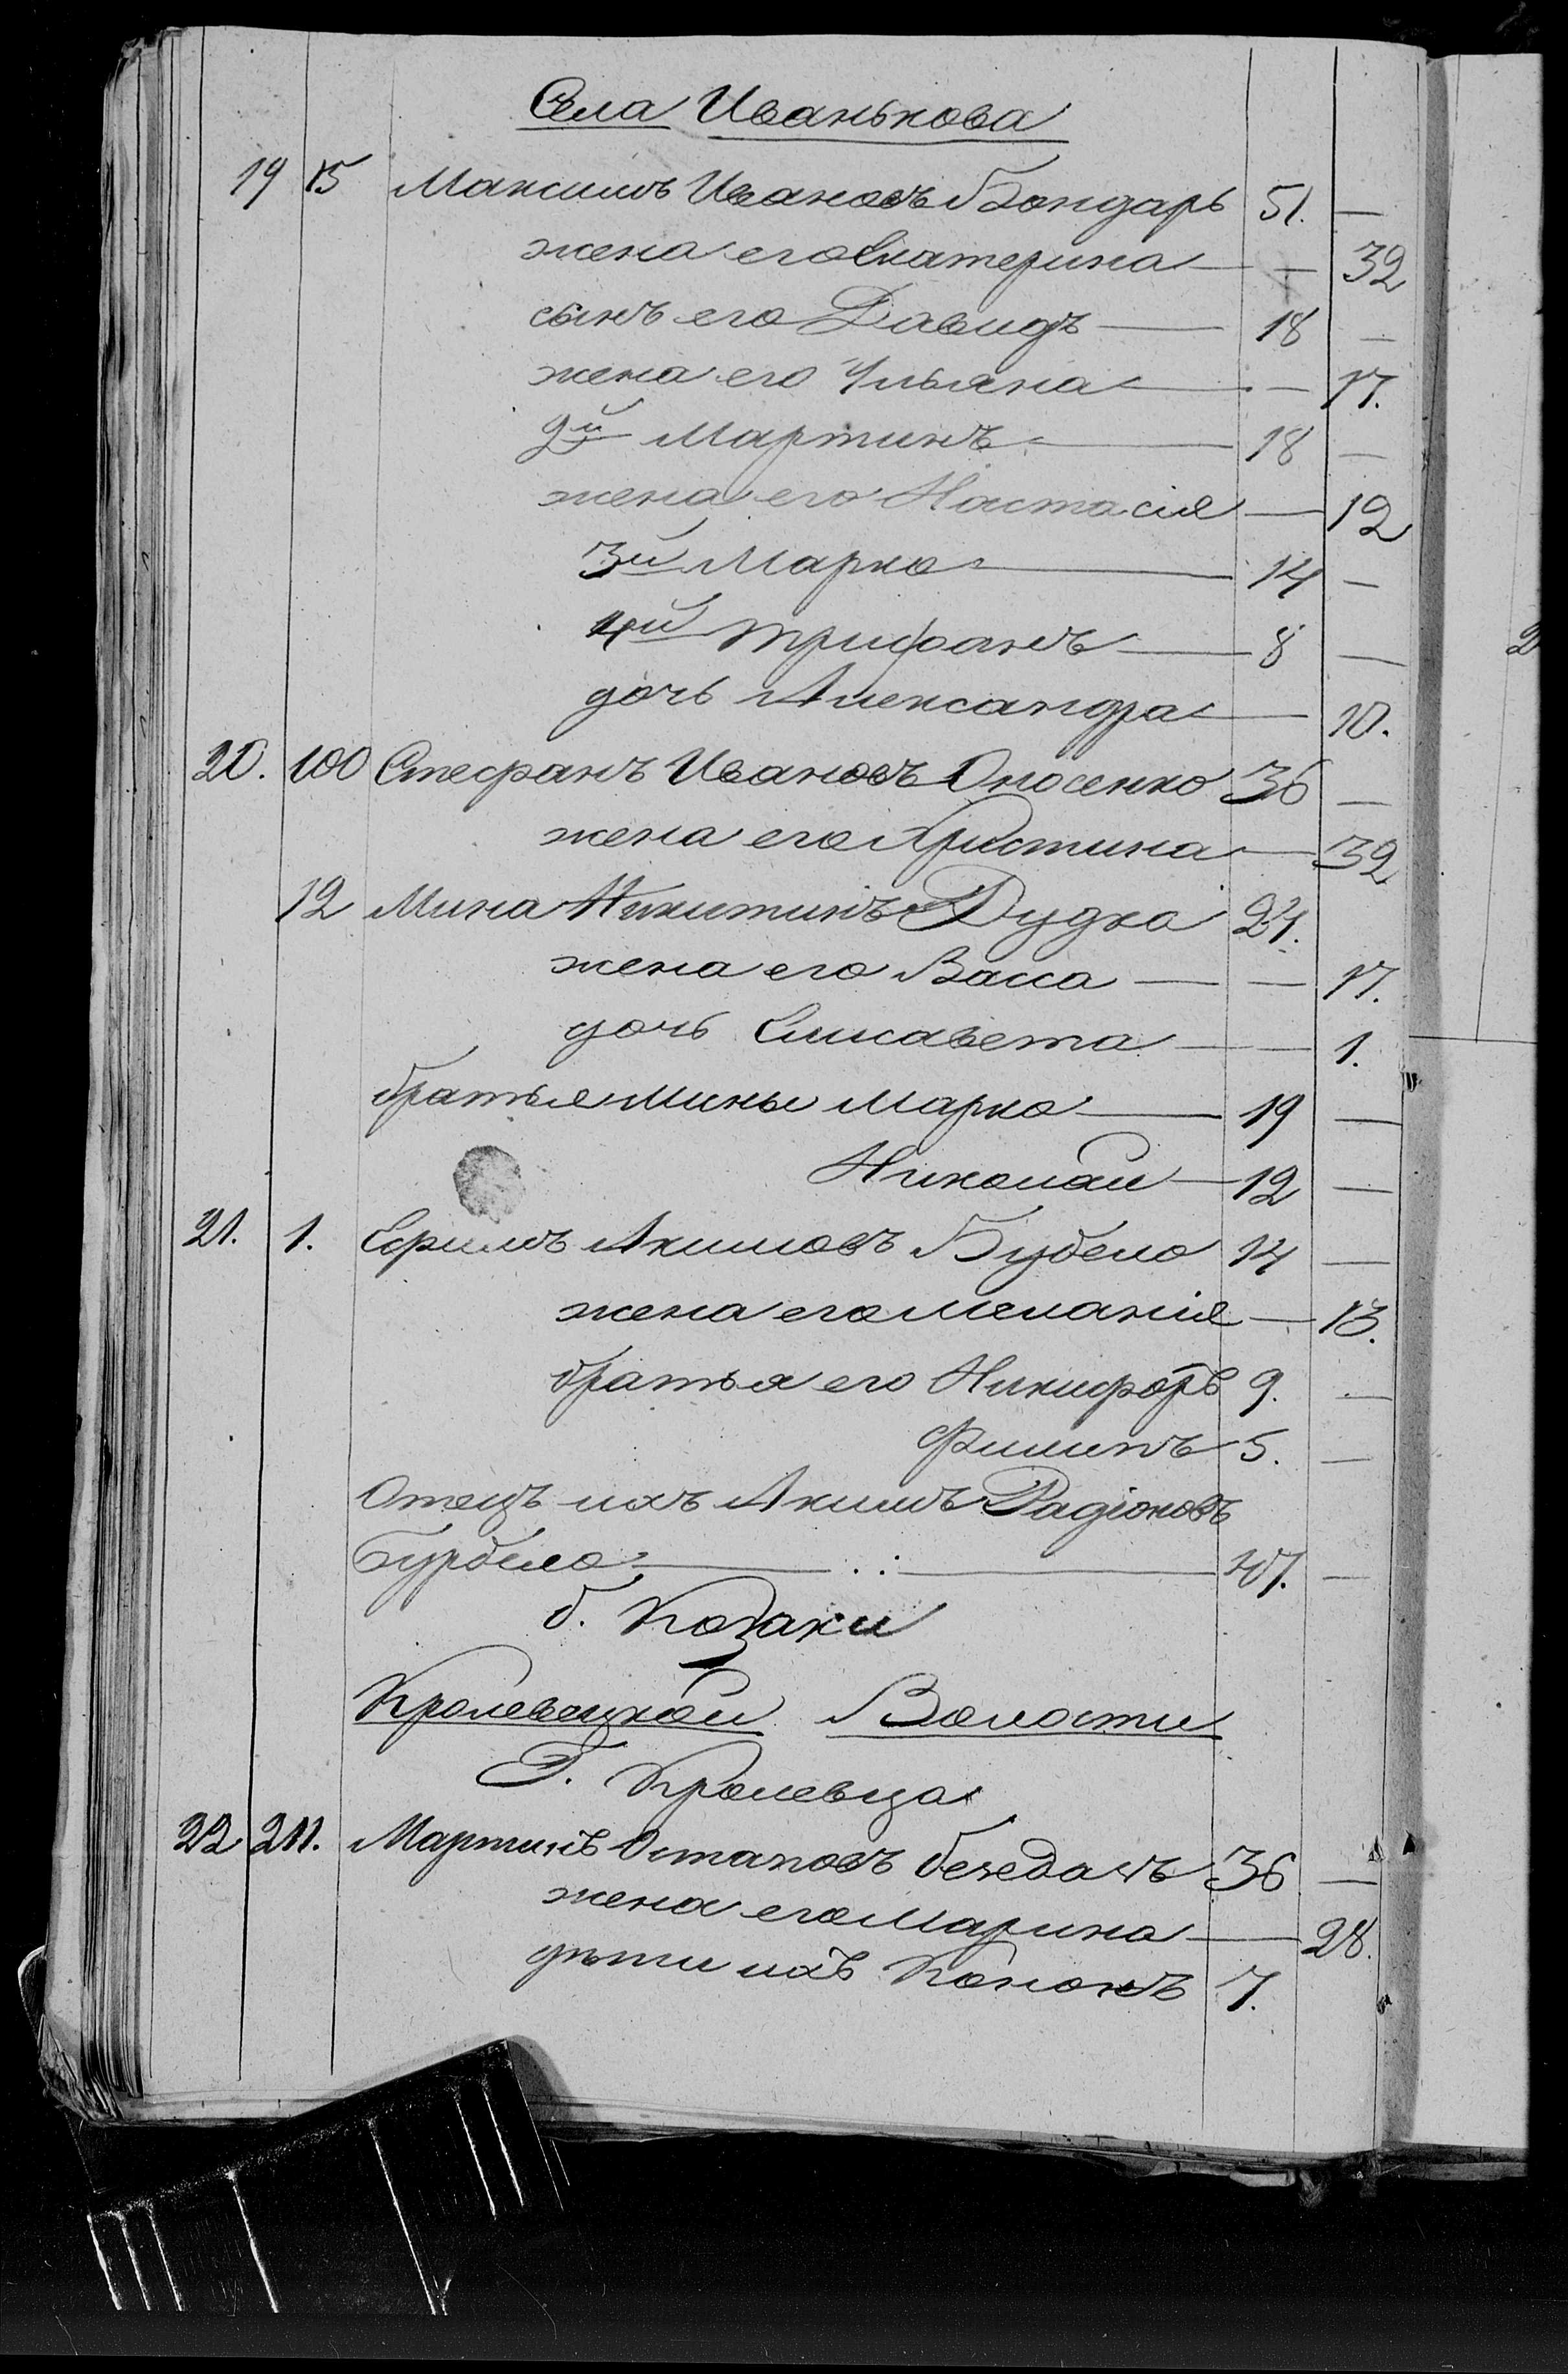 Села Иванькова
19 15 Максимъ Ивановъ Бондарь 51. —
жена его Екатерина — — 32
сынъ его Давидъ — 18 —
жена его Ульяна — — 17.
2й Мартинъ — 18 —
жена его Настасія — 12
3й Марко — 14 —
4й Трифонъ — 8 —
дочь Александра — 10.
20. 100 Стефанъ Ивановъ Оносенко 36 —
жена его Христина — 32
12 Мина Никитинъ Дудка 24.
жена его Васса — — 17.
дочь Елисавета — — 1.
братья Мины Марко — 19 —
Николай — 12 —
21. 1. Ефимъ Акимовъ Бубело 14 —
жена его Меланія — 13.
братья его Никифоръ 9. —
Филипъ 5. —
Отецъ ихъ Акимъ Радіоновъ
Бурбело — 47. —
б. Козаки
Кролевецкой Волости
Г. Кролевца
22 211. Мартинъ Остаповъ 36 —
жена его Марина — 28.
дѣти ихъ Кононъ 7.